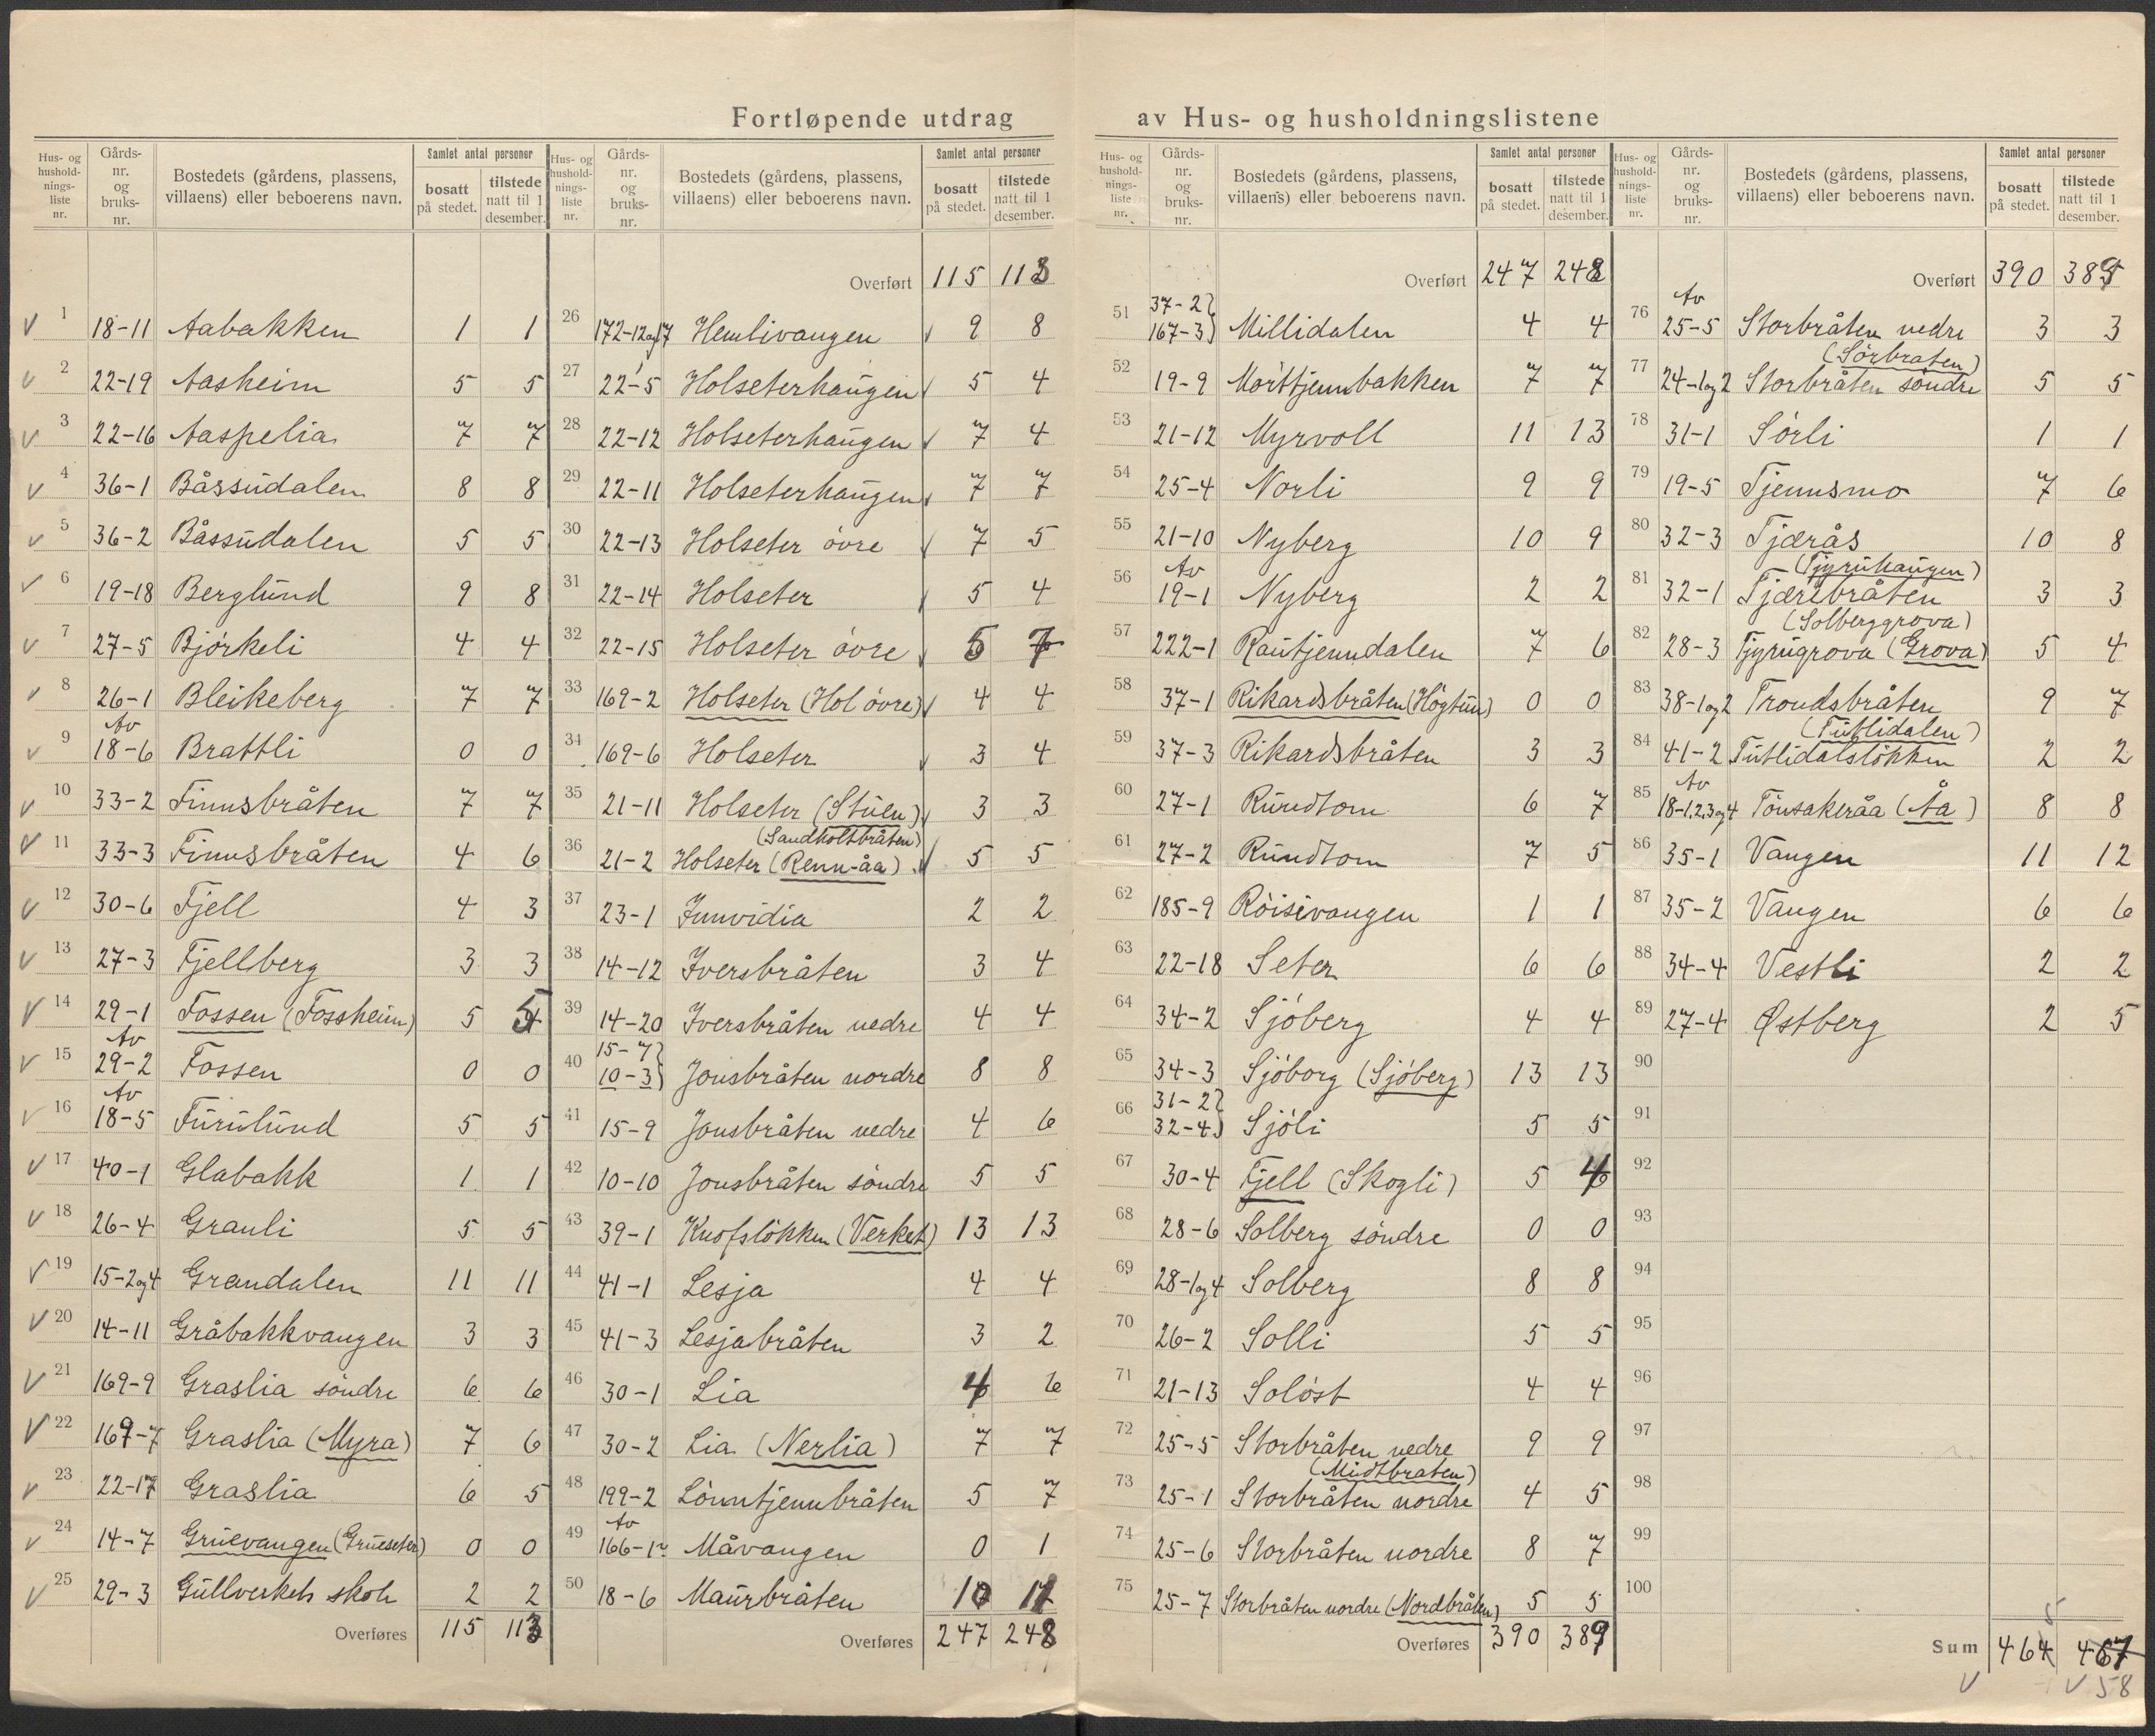 Fortløpende utdrag av Hus- og husholdningslistene
Hus- og hushold-nings-liste nr. Gårds-nr. og bruks-nr. Bostedets (gårdens, plassens, villaens) eller beboerens navn. Samlet antal personer bosatt på stedet. tilstede natt til 1 desember.
1 18-11 Aabakken 1 1
2 22-19 Aasheim 5 5
3 22-16 Aaspelia 7 7
4 36-1 Båssudalen 8 8
5 36-2 Båssudalen 5 5
6 19-18 Berglund 9 8
7 27-5 Bjørkeli 4 4
8 26-1 Bleikeberg 7 7
9 Av 18-6 Brattli 0 0
10 33-2 Finnsbråten 7 7
11 33-3 Finnsbråten 4 6
12 30-6 Fjell 4 3
13 27-3 Fjellberg 3 3
14 29-1 Fossen (Fossheim) 5 5
15 Av 29-2 Fossen 0 0
16 Av 18-5 Furulund 5 5
17 40-1 Glabakk 1 1
18 26-4 Granli 5 5
19 15-2og4 Grandalen 11 11
20 14-11 Gråbakkvangen 3 3
21 169-9 Graslia søndre 6 6
22 169-7 Graslia (Myra) 7 6
23 22-17 Graslia 6 5
24 14-7 Gruevangen (Grueseter) 0 0
25 29-3 Gullverkets skole 2 2
Overføres 115 113
Hus- og hushold-nings-liste nr. Gårds-nr. og bruks-nr. Bostedets (gårdens, plassens, villaens) eller beboerens navn. Samlet antal personer bosatt på stedet. tilstede natt til 1 desember.
Overført 115 113
26 172-12og17 Hemlivangen 9 8
27 22-5 Holseterhaugen 5 4
28 22-12 Holseterhaugen 7 4
29 22-11 Holseterhaugen 7 7
30 22-13 Holseter øvre 7 5
31 22-14 Holseter 5 4
32 22-15 Holseter øvre 5 7
33 169-2 Holseter (Hol øvre) 4 4
34 169-6 Holseter 3 4
35 21-11 Holseter (Stuen) 3 3
(Sandholtbråten)
36 21-2 Holseter (Renn-åa) 5 5
37 23-1 Junvidia 2 2
38 14-12 Iversbråten 3 4
39 14-20 Iversbråten nedre 4 4
40 15-7 10-3 Jonsbråten nordre 8 8
41 15-9 Jonsbråten nedre 4 6
42 10-10 Jonsbråten søndre 5 5
43 39-1 Knofsløkken (Verket) 13 13
44 41-1 Lesja 4 4
45 41-3 Lesjabråten 3 2
46 30-1 Lia 4 6
47 30-2 Lia (Nerlia) 7 7
48 199-2 Lønntjennbråten 5 7
49 Av 166-1 Måvangen 0 1
50 18-6 Maurbråten 10 11
Overføres 247 248
Hus- og hushold-nings-liste nr. Gårds-nr. og bruks-nr. Bostedets (gårdens, plassens, villaens) eller beboerens navn. Samlet antal personer bosatt på stedet. tilstede natt til 1 desember.
Overført 247 248
51 37-2 167-3 Millidalen 4 4
52 19-9 Morttjennbakken 7 7
53 21-12 Myrvoll 11 13
54 25-4 Norli 9 9
55 21-10 Nyberg 10 9
56 Av 19-1 Nyberg 2 2
57 222-1 Rautjenndalen 7 6
58 37-1 Rikardsbråten (Høgtun) 0 0
59 37-3 Rikardsbråten 3 3
60 27-1 Rundtom 6 7
61 27-2 Rundtom 7 5
62 185-9 Røisivangen 1 1
63 22-18 Seter 6 6
64 34-2 Sjøberg 4 4
65 34-3 Sjøborg (Sjøberg) 13 13
66 31-2 32-4 Sjøli 5 5
67 30-4 Fjell (Skogli) 5 4
68 28-6 Solberg søndre 0 0
69 28-1og4 Solberg 8 8
70 26-2 Solli 5 5
71 21-13 Soløst 4 4
72 25-5 Storbråten nedre 9 9
(Midtbråten)
73 25-1 Storbråten nordre 4 5
74 25-6 Storbråten nordre 8 7
75 25-7 Storbråten nordre (Nordbråten) 5 5
Overføres 390 389
Hus- og hushold-nings-liste nr. Gårds-nr. og bruks-nr. Bostedets (gårdens, plassens, villaens) eller beboerens navn. Samlet antal personer bosatt på stedet. tilstede natt til 1 desember.
Overført 390 389
76 Av 25-5 Storbråten nedre 3 3
(Sørbråten)
77 24-1og2 Storbråten søndre 5 5
78 31-1 Sørli 1 1
79 19-5 Tjennsmo 7 6
80 32-3 Tjærås 10 8
(Tjyruhaugen)
81 32-1 Tjærebråten 3 3
(Solberggrova)
82 28-3 Tjyrugrova (Grova) 5 4
83 38-1og2 Trondsbråten 9 7
(Tutlidalen)
84 41-2 Tutlidalsløkken 2 2
85 Av 18-1,2,3og4 Tønsakeråa (Åa) 8 8
86 35-1 Vangen 11 12
87 35-2 Vangen 6 6
88 34-4 Vestli 2 2
89 27-4 Østberg 2 5
90
91
92
93
94
95
96
97
98
99
100
5
Sum 464 467
58